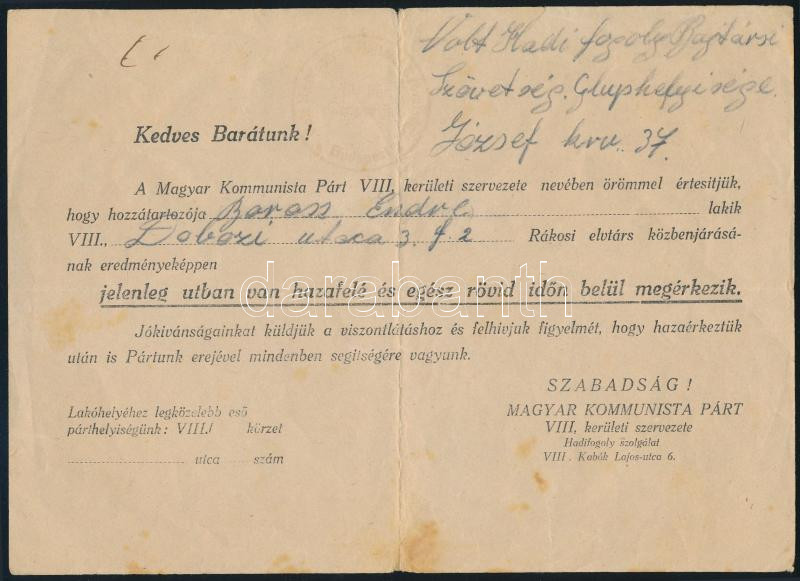 Volt Hadi fogoly Bajtársi
Szövetség. Gluphelyisége.
József krv.. 37.
Kedves Barátunk!
A Magyar Kommunista Párt VIII, kerületi szervezete nevében örömmel értesitjük,
hogy hozzátartozója Boros Endre lakik
VIII., Dobozi utca 3. f 2 Rákosi elvtárs közbenjárásá-
nak eredményeképpen
jelenleg utban van hazafelé és egész rövid időn belül megérkezik.
Jókivánságainkat küldjük a viszontlátáshoz és felhivjuk figyelmét, hogy hazaérkeztük
után is Pártunk erejével mindenben segitségére vagyunk.
SZABADSÁG!
MAGYAR KOMMUNISTA PÁRT
VIII, kerületi szervezete
Hadifogoly szolgálat
VIII. Kabók Lajos-utca 6.
Lakóhelyéhez legközelebb eső
párthelyiségünk: VIII/ körzet
utca szám
darabanth